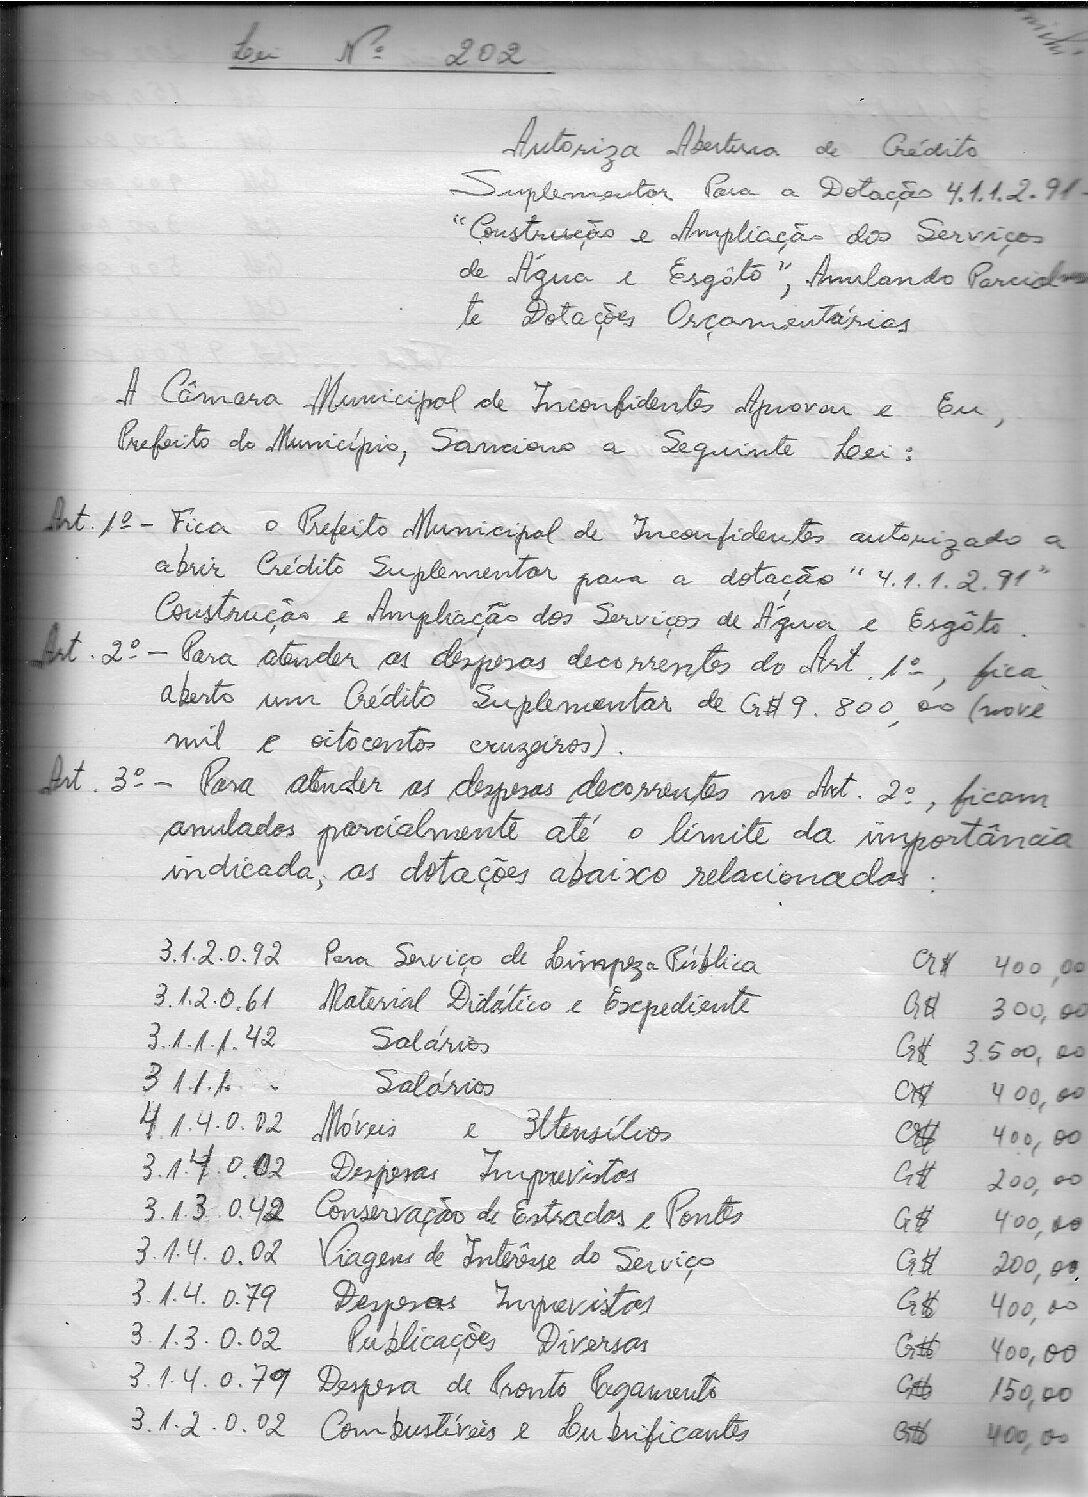 Lei Nº 202
Autoriza Abertura de Crédito
Suplementar Para a Dotação 4.1.1.2.91-
"Construção e Ampliação dos Serviços
de Água e Esgôto", Anulando Parcialmen
te Dotações Orçamentárias
A Câmara Municipal de Inconfidentes Aprovou e Eu,
Prefeito do Município, Sanciono a Seguinte Lei:
Art. 1º - Fica o Prefeito Municipal de Inconfidentes autorizado a
abrir Crédito Suplementar para a dotação "4.1.1.2.91"
Construção e Ampliação dos Serviços de Água e Esgôto.
Art. 2º - Para atender as despesas decorrentes do Art. 1º, fica
aberto um Crédito Suplementar de Cr$ 9.800,00 (nove
mil e oitocentos cruzeiros).
Art. 3º - Para atender as despesas decorrentes no Art. 2º, ficam
anulados parcialmente até o limite da importância
indicada, as dotações abaixo relacionadas:
3.1.2.0.92 Para Serviço de Limpeza Pública Cr$ 400,00
3.1.2.0.61 Material Didático e Expediente Cr$ 300,00
3.1.1.1.42 Salários Cr$ 3.500,00
3 1.1.1. Salários Cr$ 400,00
4.1.4.0.02 Móveis e Utensílios Cr$ 400,00
3.1.4.0.02 Despesas Imprevistas Cr$ 200,00
3.1.3.0.42 Conservação de Estradas e Pontes Cr$ 400,00
3.1.4.0.02 Viagens de Interêsse do Serviço Cr$ 200,00
3.1.4.0.79 Despesas Imprevistas Cr$ 400,00
3.1.3.0.02 Publicações Diversas Cr$ 400,00
3.1.4.0.79 Despesa de Pronto Pagamento Cr$ 150,00
3.1.2.0.02 Combustíveis e Lubrificantes Cr$ 400,00